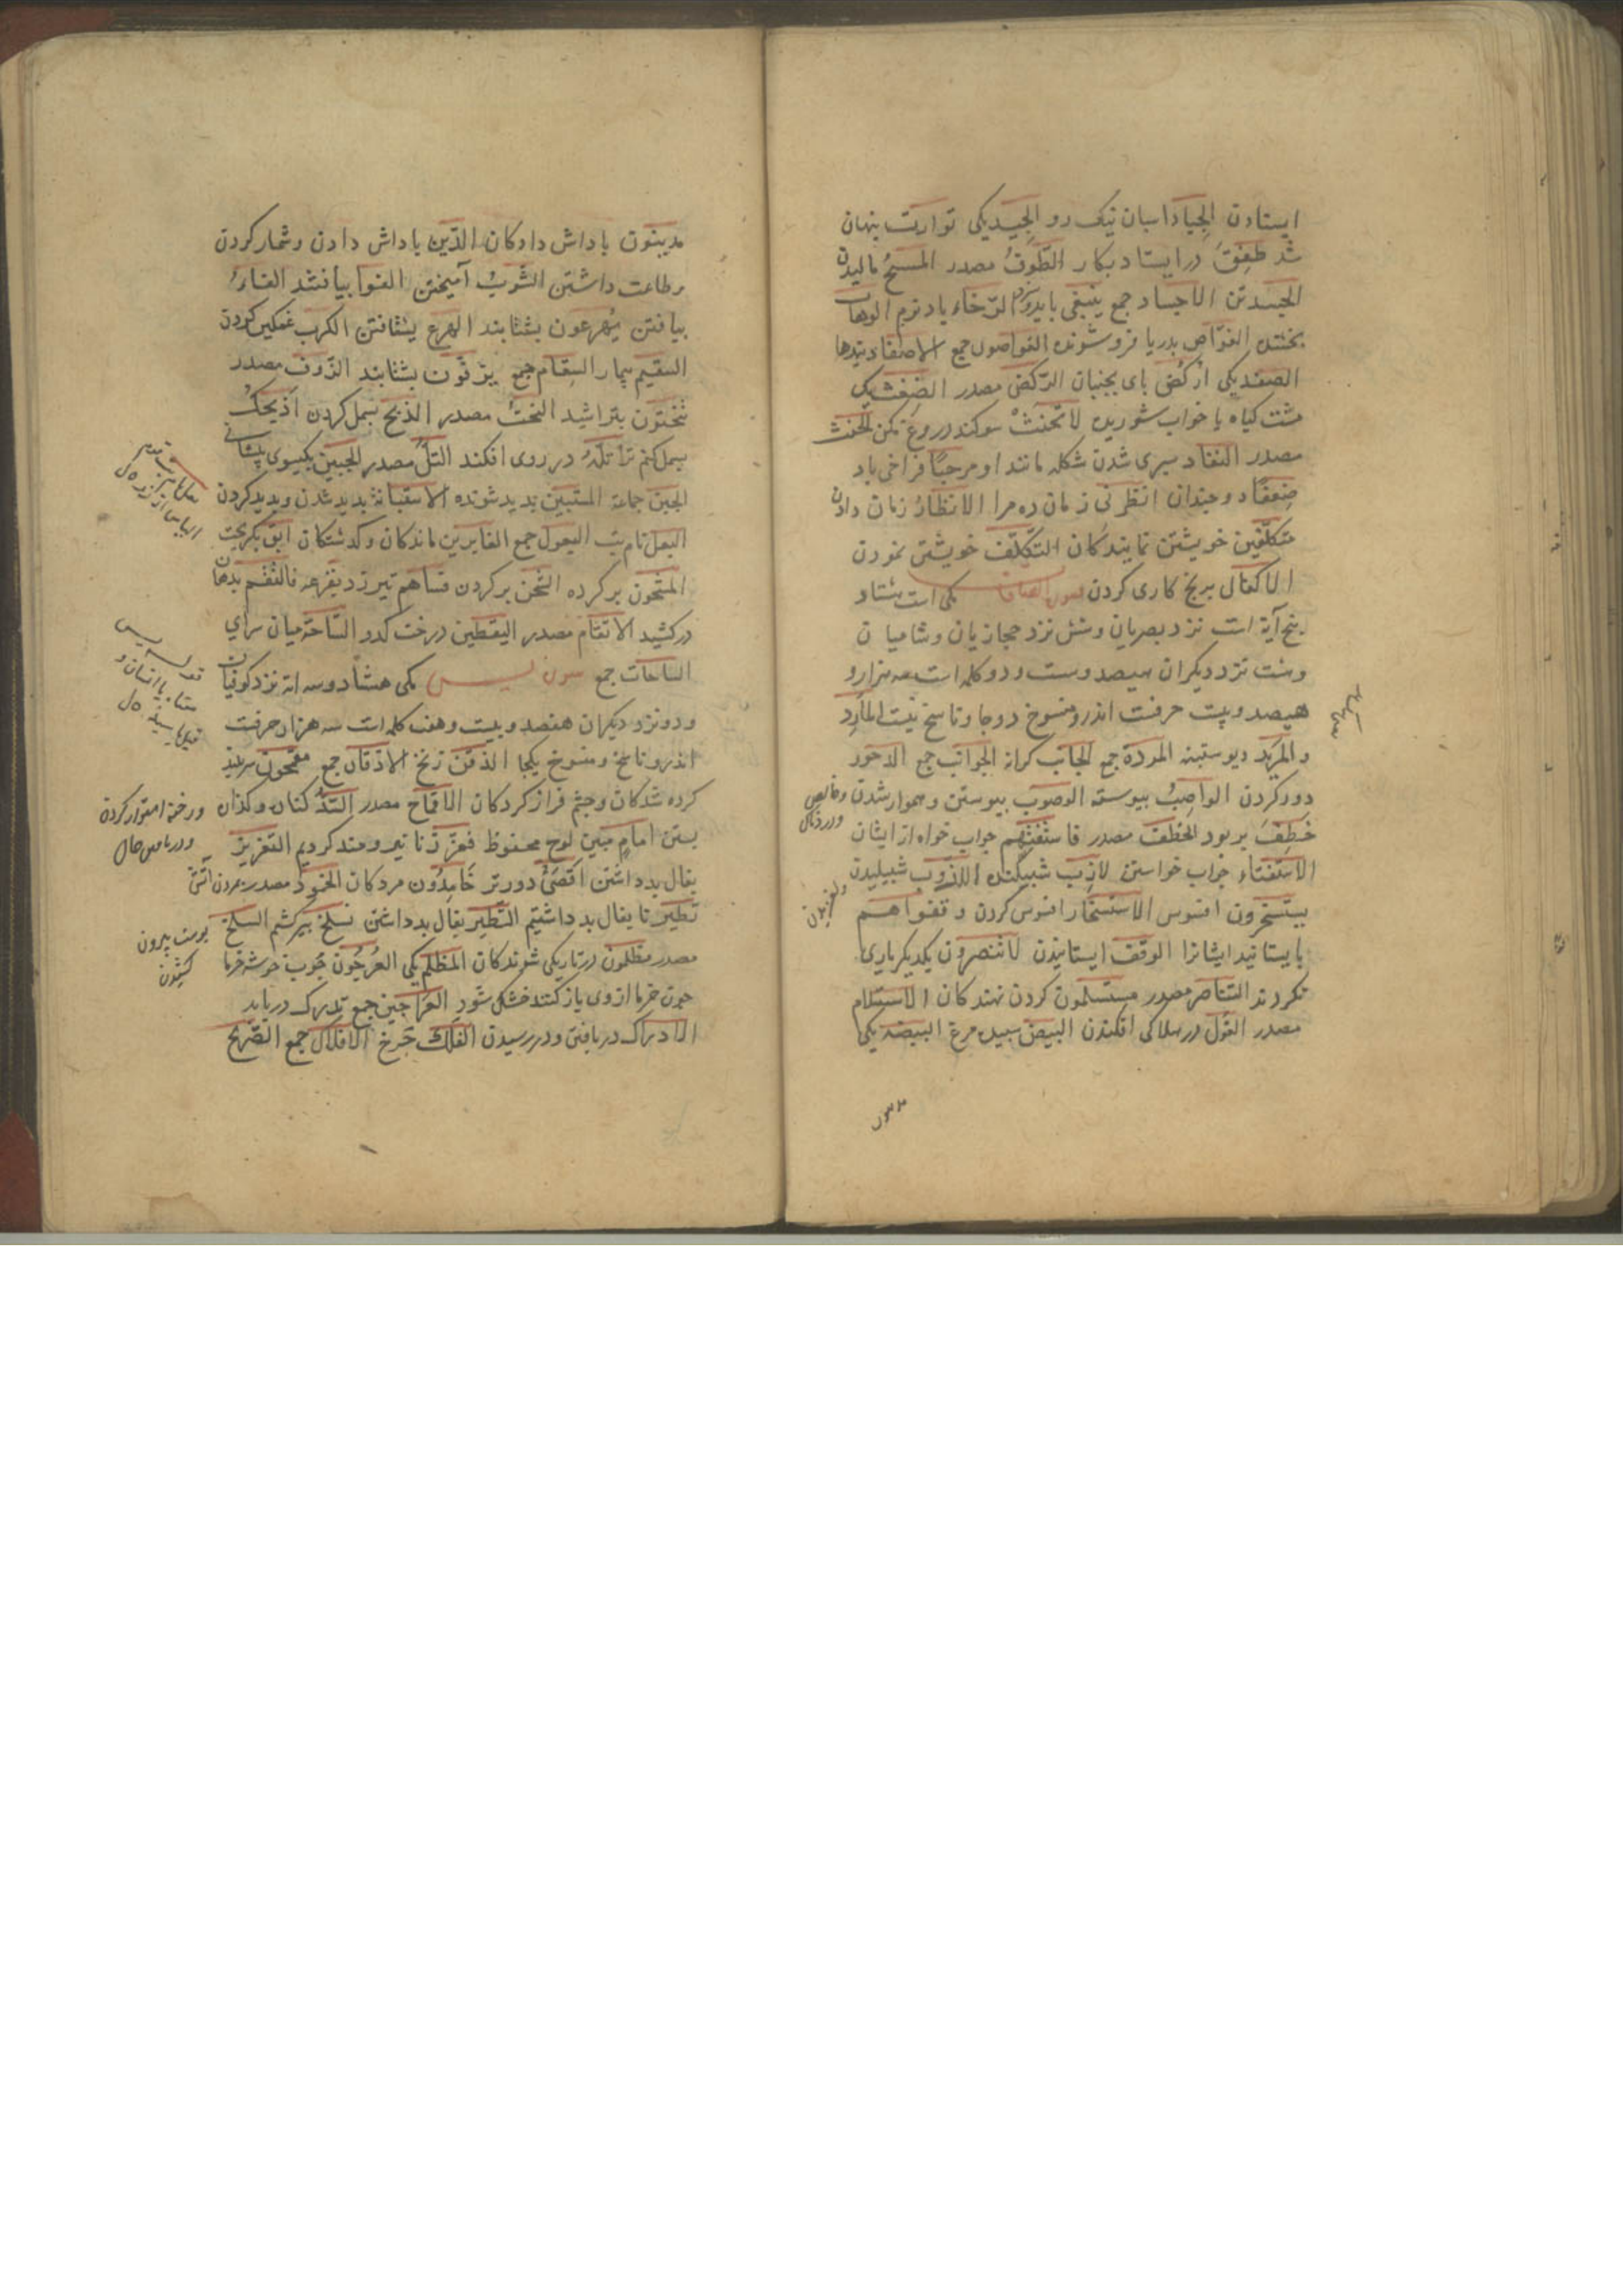 ایستادن الجیاد اسبان نیک رو الجید یکی توارت پنهان
شد طفق در ایستاد بکار الطفوق مصدر المسح مالیدن
الجسد تن الاجساد جمع ینبغی باید الرخاء باد نرم الوهاب
بخشنده الغواص بدریا فرو شونده الغواصون جمع الاصفاد بندها
الصفد یکی ارکض بای بجنبان الرکض مصدر الضغث یک
مشت کیاه یا خواب شوریده لا تحنث سوکند دروغ مکن الحنث
مصدر النفاد سپری شدن شکله مانند او مرحبا فراخی باد
ضعفا دو چندان انظرنی زمان ده مرا الانظار زمان دادن
متکلفین خویشتن نمایندکان التکلف خویشتن نمودن
الا برنج کاری کردن سورة الصافات مکی است هشتاد
پنج آیة است نزد بصریان و شش نزد حجازیان و شامیان
و هشت نزد دیکران هیصد وست و دو کلمه است سه هزار و
هیصد و بیست حرفست اندرو منسوخ دو جا و ناسخ نیست المارد
و المرید دیو ستبنه المردة جمع الجانب کرانه الجوانب جمع الدحور
دور کردن الواصب پیوسته الوصوب پیوستن و هموار شدن و خالص
خطف بربود الخطف مصدر فاستفتهم جواب خواه از ایشان
الاستفتاء جواب خواستن لازب شپیلنده اللزوب شپیلیدن
یستسخرون افسوس الاستسخار افسوس کردن وقفوا هم
بایستانید ایشانرا الوقف ایستانیدن لا تنصرون یکدیکر یاری
نکردند التناصر مصدر مستسلمون کردن نهندکان الاستسلام
مصدر الغول در هلاکی افکندن البیض سپیده مرغ البیضة یکی
مدینون
مدینون باداش دادکان الدین باداش دادن و شمار کردن
و طاعت داشتن الشوب آمیختن الفوا بیافتند الالفاء
بیافتن یهرعون بشتابند الهرع بشتافتن الکرب غمکین کردن
السقیم بیمار السقام جمع یزفون بشتابند الزوف مصدر
تنحتون بتراشید النحت مصدر الذبح بسمل کردن اذبحک
بسمل کنم ترا تله در روی افکند التل مصدر الجبین یکسوی پیشانی
الجبن جماعة المستبین بدید شونده الاستبانة بدید شدن و بدید کردن
البعل نام بت البعول جمع الغابرین ماندکان و کدشتکان ابق بکریخت
المشحون بر کرده الشحن بر کردن فساهم تیر زد بقرعه فالتقم بدهان
در کشید الالتقام مصدر الیقطین درخت کدو الساحة میان سرای
الساحات جمع سورة یس مکی هشتاد و سه آیة نزد کوفیان
و دو نزد دیکران هفصد و بیست و هفت کلمه است سه هزار حرفست
اندرو ناسخ و منسوخ یکجا الذقن زنخ الاذقان جمع مقمحون سر بلند
کرده شدکان و چشم فراز کردکان الاقماح مصدر السد کنان و کذان
بستن امام مبین لوح محفوظ فعززنا نیرومند کردیم التعزیز
بفال بد داشتن اقصی دورتر خامدون مردکان الخمود مصدر مردن آتش
تطیرنا بفال بد داشتیم التطیر بفال بد داشتن نسلخ بیرکشیم السلخ
مصدر مظلمون در تاریکی شوندکان المظلم یکی العرجون چوب خوشه خرما
چون خرما از وی باز کنند خشک شود العراجین جمع تدرک دریابد
الادراک دریافتن و در رسیدن الفلک چرخ الافلاک جمع الصریخ
و رخنه استوار کردن
پوست بیرون
کشیدن